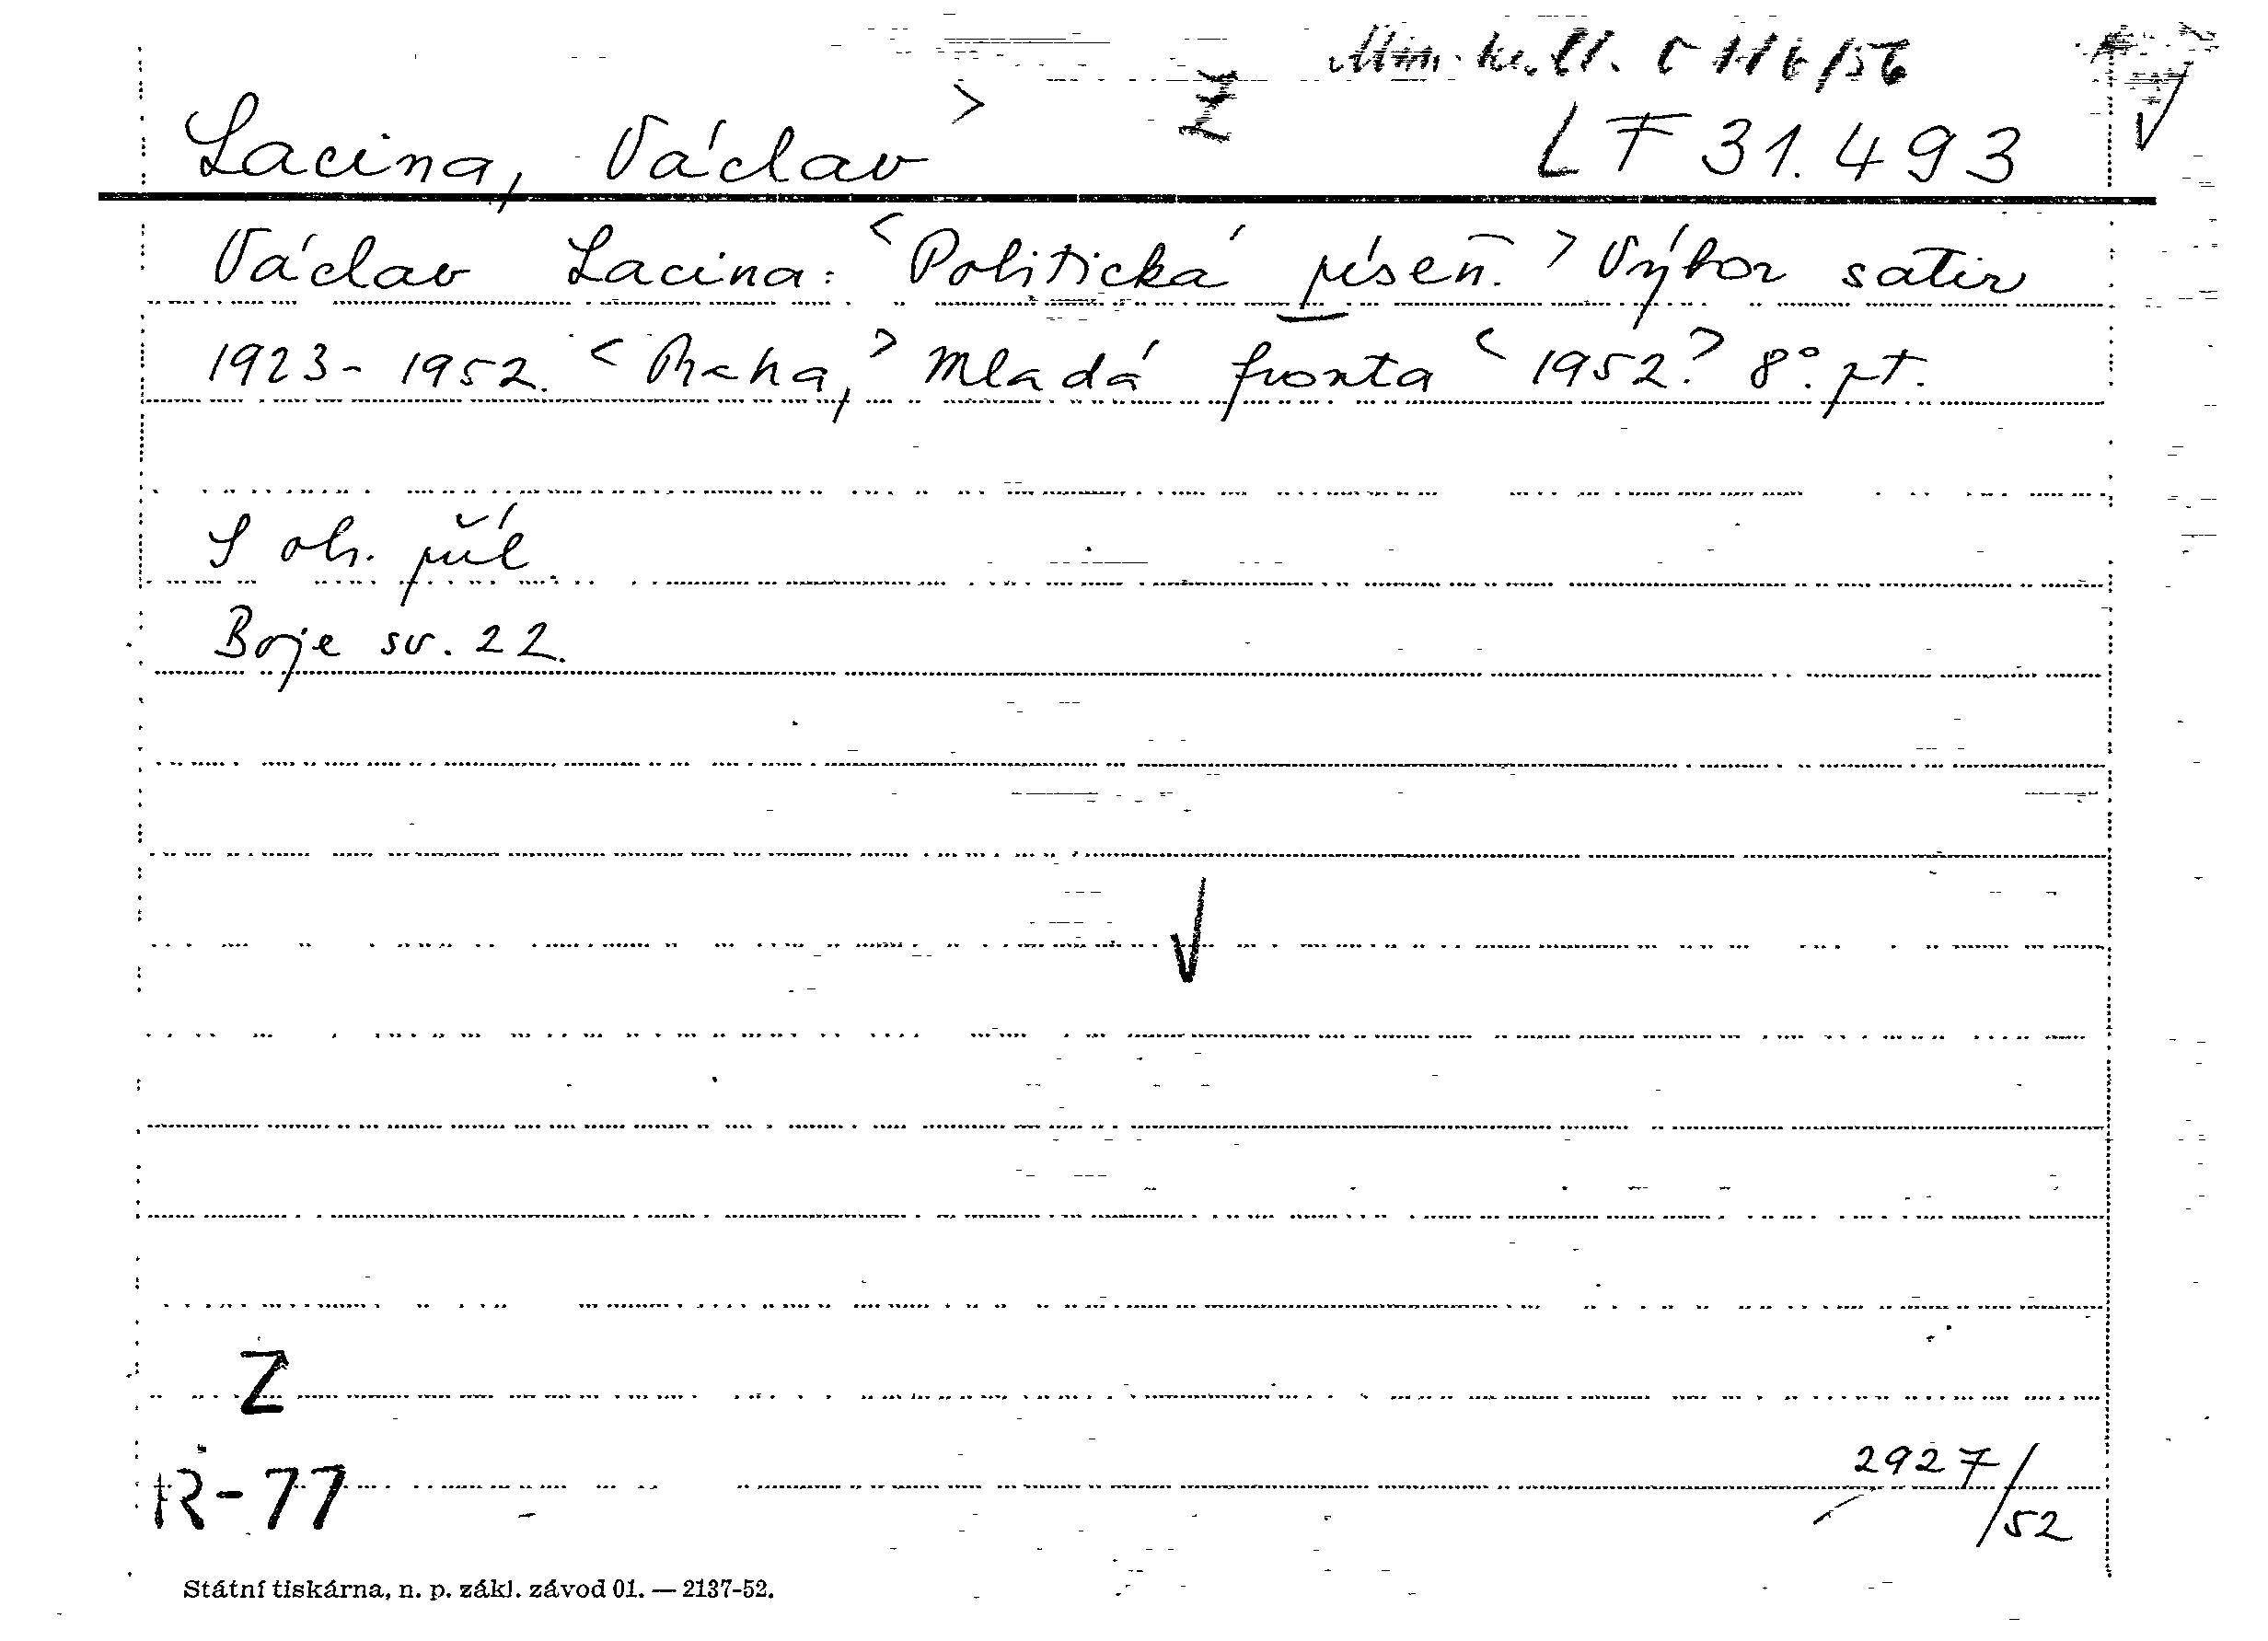 Min. kult. 116/56
Lacina, Václav > Z LF 31.493
Václav Lacina: <Politická píseň.> Výbor satir
1923-1952. <Praha,> Mladá fronta <1952.> 8°. pt.
S ob. příl.
Boje sv. 22.
Z
R-77
2927/52
Státní tiskárna, n. p. zákl. závod 01. — 2137-52.